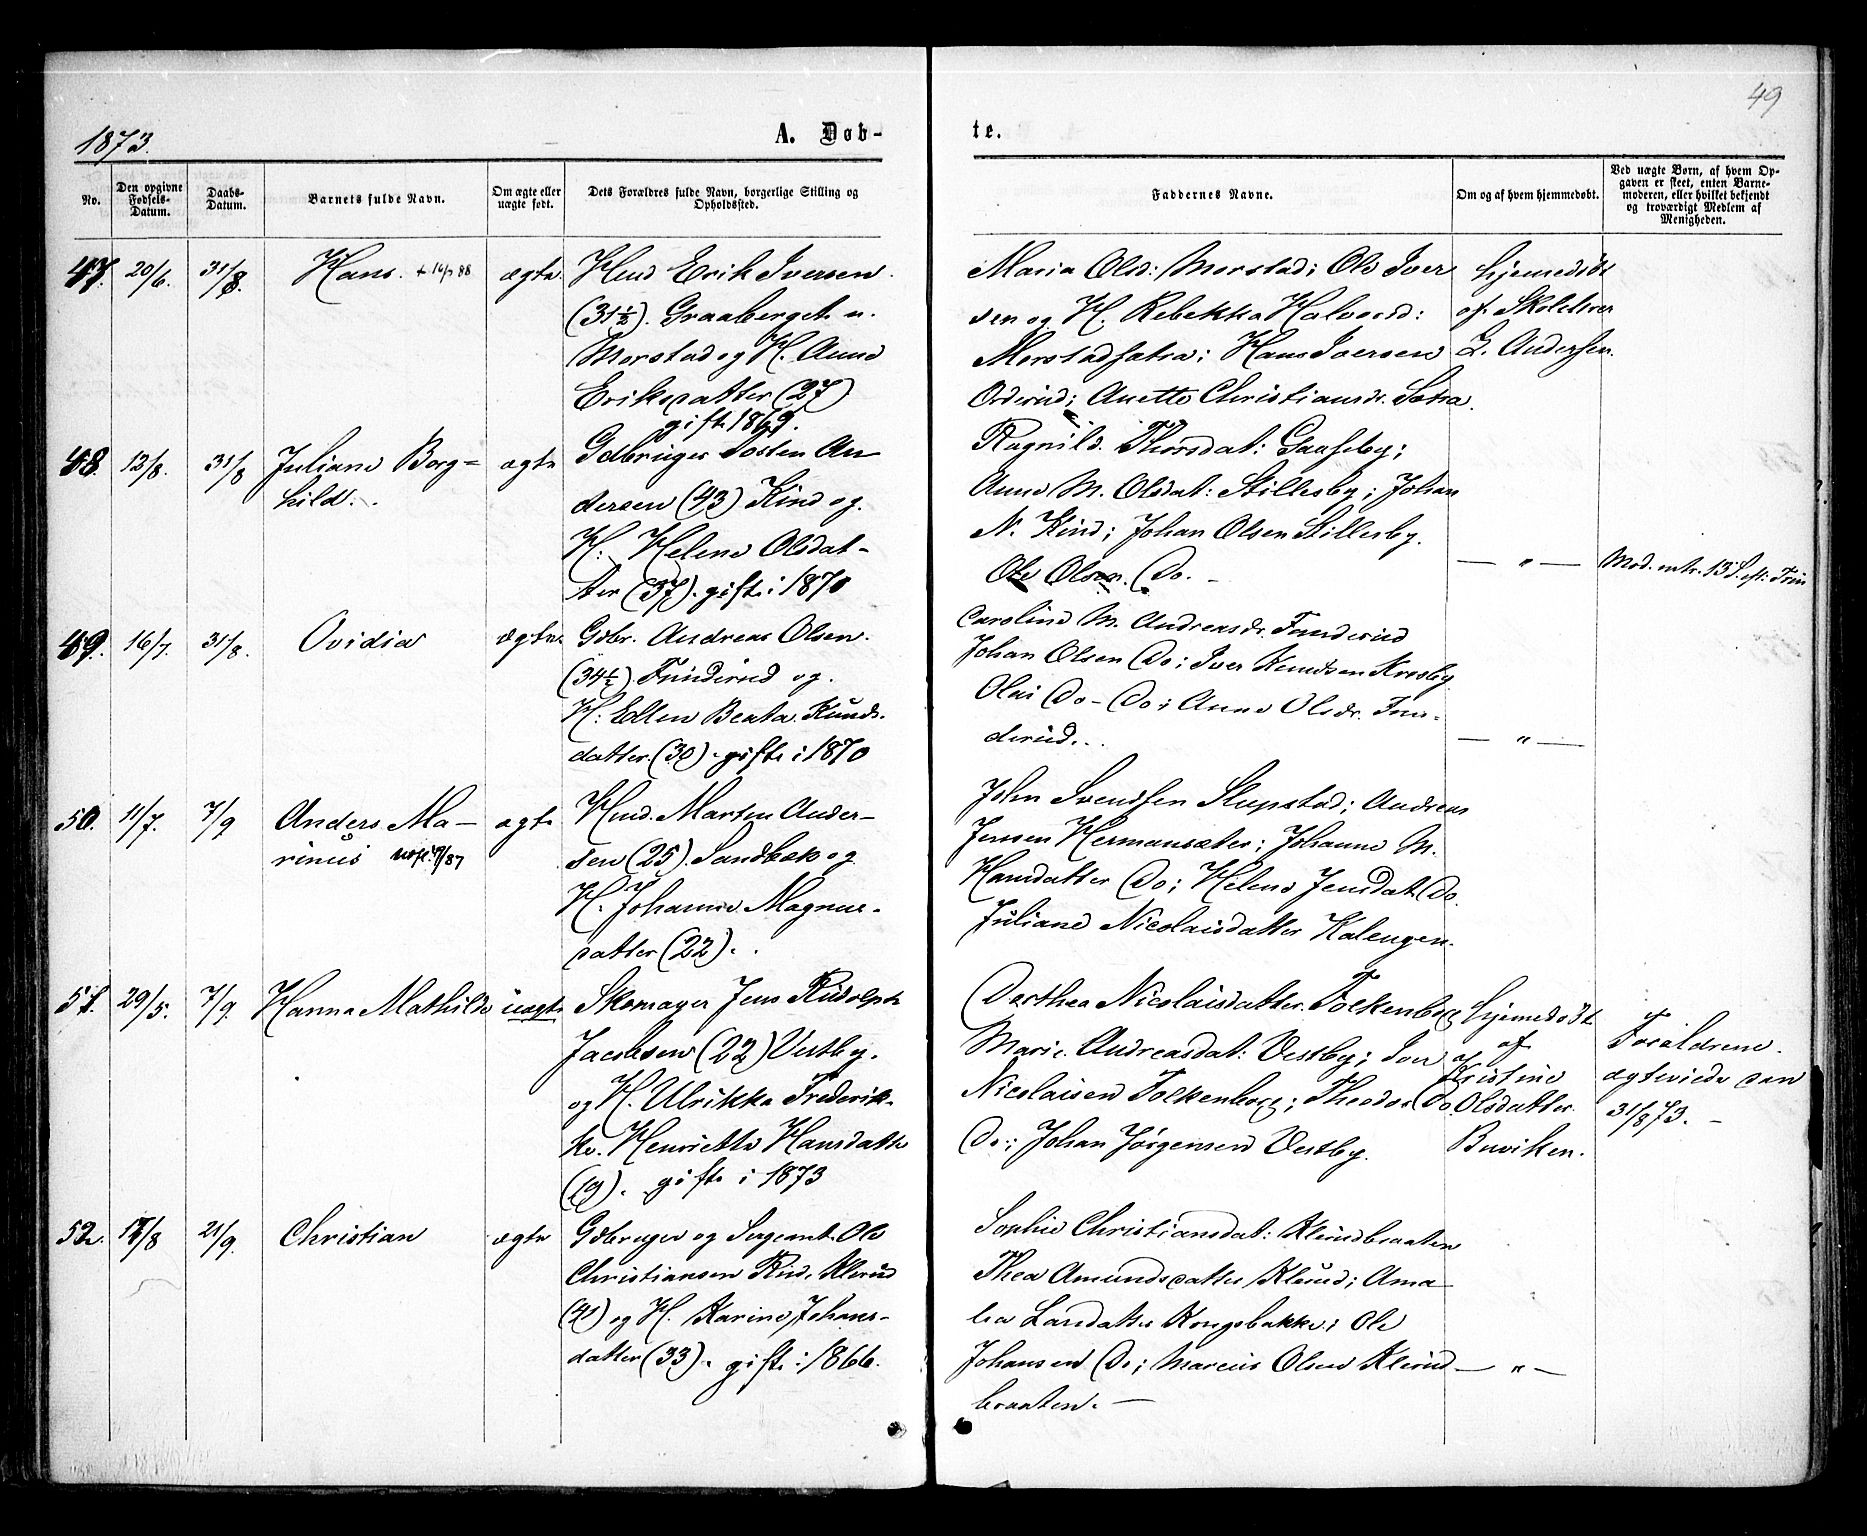 49
1873.
A. Døb-
te.
No.
Den opgivne Fødsels-Datum.
Daabs-Datum.
Barnets fulde Navn.
Om ægte eller uægte født.
Dets Forældres fulde Navn, borgerlige Stilling og Opholdssted.
Faddernes Navne.
Om og af hvem hjemmedøbt.
Ved uægte Børn, af hvem Opgaven er skeet, enten Barnemoderen, eller hvilket bekjendt og troværdigt Medlem af Menigheden.
47. 20/6. 31/8. Hans. ægte Hmd Erik Iversen
(31½). Graaberget u.
Morstad og H. Anne
Eriksdatter (27)
gift 1869.
Maria Olsd: Morstad; Ole Iver
sen og H. Rebekka Halvorsd:
Morstadsætra; Hans Iversen
Orderud; Anette Christiansdr. Sætra.
Hjemedøbt
af Skolelærer
L. Andersen.
48. 12/8. 31/8 Juliane Borg=
hild. ægte Gdbruger Josten An
dersen (43) Kind og
H: Helene Olsdat-
ter (37). gift i 1870
Ragnild Thorsdat: Gaaseby;
Anne M. Olsdat: Stillesby; Johan
N. Kind; Johan Olsen Stillesby.
Ole Olsen Do. —
— " —
Mod. intr. 13 S. eft. Trin
49. 16/7. 31/8. Ovidia ægte. Gdbr. Andreas Olsen
(34½). Funderud og
H: Edlen Beata Knuds-
datter (30). gift i 1870
Caroline M. Andreasdr. Funderud
Johan Olsen Do; Iver Knudsen Krosby
Olai Do - Do; Anne Olsdr. Fun-
derud.
— " —
50. 11/7. 7/9 Anders Ma-
rinus ægte Hmd. Marten Ander-
sen (25). Sandbæk og
H. Johanne Magnus-
datter (22).
John Svendsen Slupstad; Andreas
Jensen Hermansæter; Johanne M.
Hansdatter Do; Helene Jensdat. Do.
Juliane Nicolaisdatter Kalengen.
51. 29/5. 7/9. Hanna Mathilde uægte Skomager Jens Rudolph
Jacobsen (22) Vestby.
og H. Ulrikka Frederik-
ke Henriette Hansdatter
(19). gift i 1873
Dorthea Nicolaisdatter. Folkenborg
Marie Andreasdat: Vestby; Iver
Nicolaisen Folkenborg; Theodor Do
Do; Johan Jørgensen Vestby.
Hjemedøbt
af
Kristine
Olsdatter
Buviken.
Forældrene
ægteviede den
31/8 73. —
52. 17/8 21/9. Christian ægte Gdbruger og Sergeant Ole
Christiansen Klerud
(41) og H. Karine Johans-
datter (33). gift i 1866.
Sophie Christiansdat: Klerudbraaten
Thea Amundsdatter Klerud; Ama
lia Larsdatter Kongsbakke; Ole
Johansen Do; Marius Olsen Klerud
braaten. —
— " —